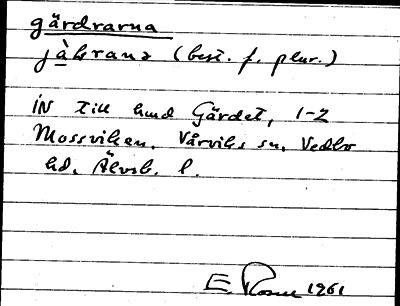 gärdrarna
jàlrana (best. f. plur.)
IN till hmd Gärdet, 1-2
Mossviken, Vårviks sn, Vedbo
hd, Älvsb. l.
E. Rosén 1961